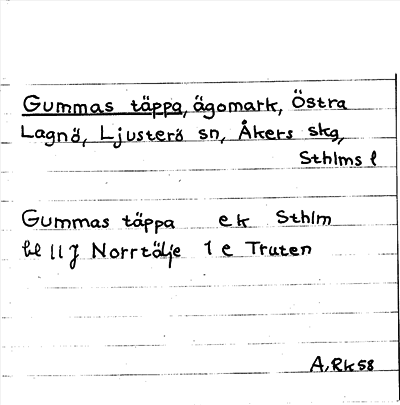 Gummas täppa, ägomark, Östra
Lagnö, Ljusterö sn, Åkers skg,
Sthlms l
Gummas täppa ek Sthlm
bl 11 J Norrtälje 1 e Truten
A. Rk 58